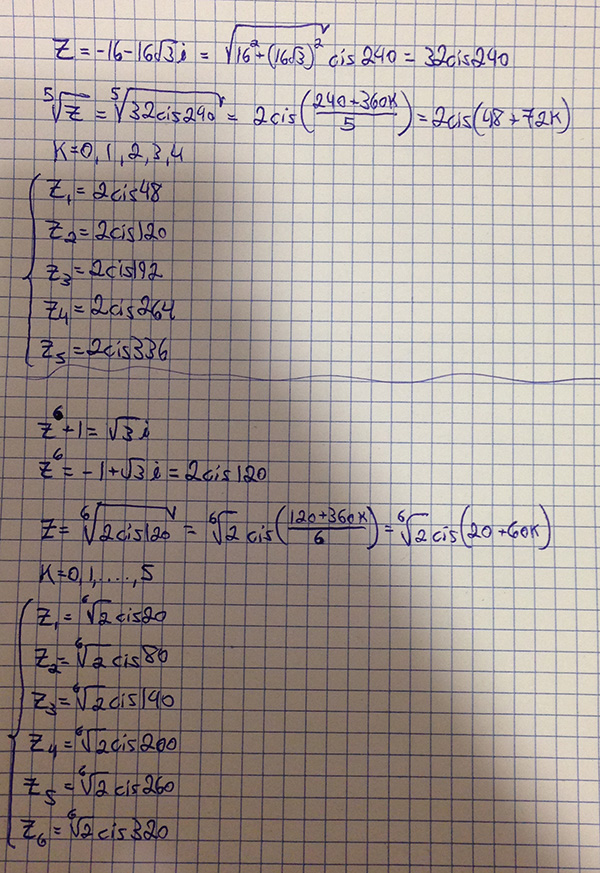 Z = -16-16√3i = √(16²+(16√3)²) cis240 = 32cis240
⁵√Z = ⁵√(32cis240) = 2cis((240+360K)/5) = 2cis(48+72K)
K=0,1,2,3,4
Z₁ = 2cis48
Z₂ = 2cis120
Z₃ = 2cis192
Z₄ = 2cis264
Z₅ = 2cis336
Z⁶+1 = √3i
Z⁶ = -1+√3i = 2cis120
Z = ⁶√(2cis120) = ⁶√2 cis((120+360K)/6) = ⁶√2 cis(20+60K)
K=0,1,....,5
Z₁ = ⁶√2cis20
Z₂ = ⁶√2cis80
Z₃ = ⁶√2cis140
Z₄ = ⁶√2cis200
Z₅ = ⁶√2cis260
Z₆ = ⁶√2cis320